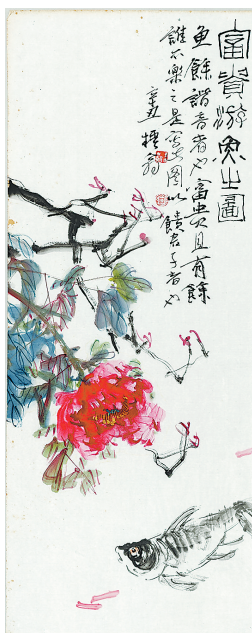 富貴游魚之圖
魚餘諧音者也富貴且有餘
誰不樂之是寫此圖以饋君子者也
辛丑